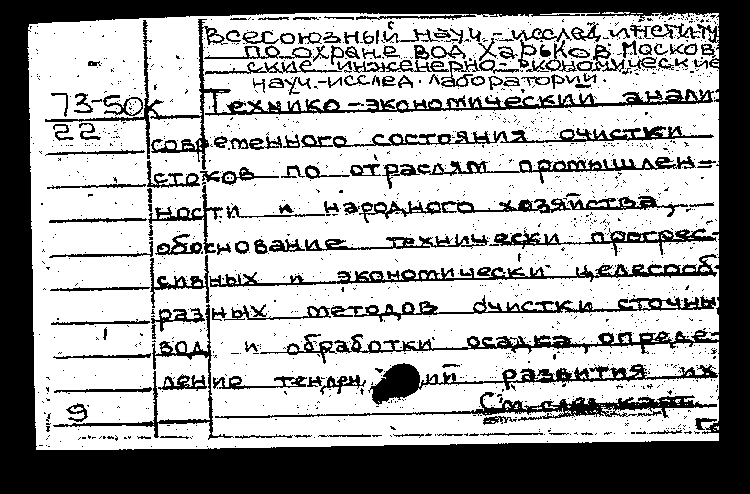 Всесоюзный науч.-исслед. институ
по охране вод Харьков Москов
ские инженерно-экономические
науч.-исслед. лаборатории.
73-50к Технико-экономический анализ
22 современного состояния очистки
стоков по отраслям промышлен-
ности и народного хозяйства,
обоснование технически прогрес-
сивных и экономически целесооб-
разных методов очистки сточных
вод и обработки осадка, опреде-
ление тенден ий развития их
9 См. след. карт.